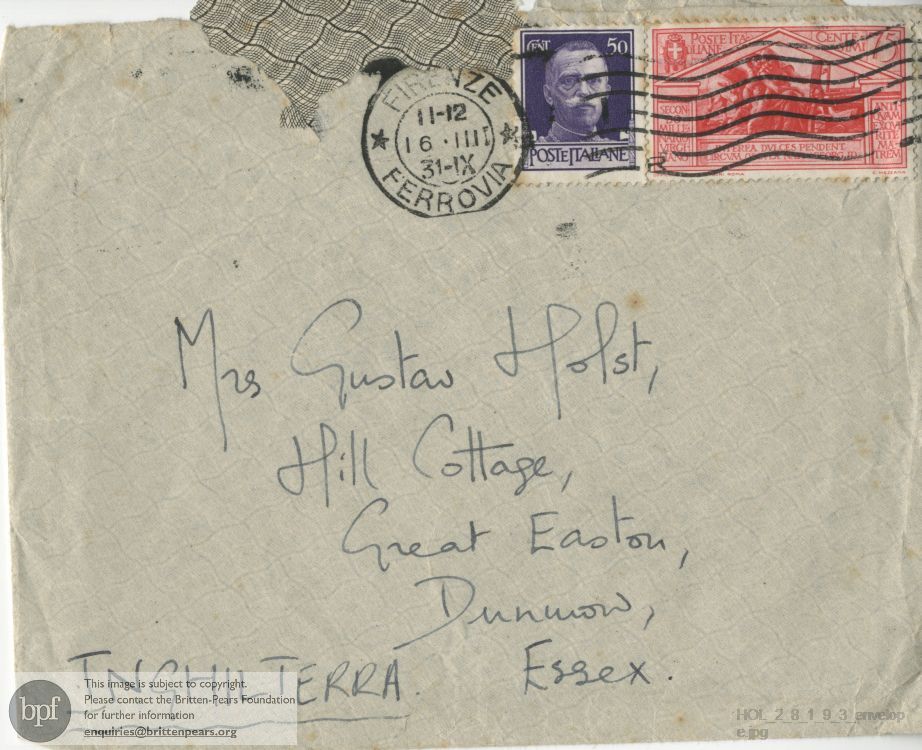 FIRENZE
11-12
16 · III
31-IX
FERROVIA
CENT 50
POSTE ITALIANE
POSTE ITALIANE CENTESIMI 75
INTEREA DVLCES PENDENT
CIRCVM
ANTIQVAM EXQVIRITE MATREM
Mrs Gustav Holst,
Hill Cottage,
Great Easton,
Dunmow,
Essex.
INGHILTERRA.
bpf
This image is subject to copyright.
Please contact the Britten-Pears Foundation
for further information
enquiries@brittenpears.org
HOL_28193_envelop
e.jpg